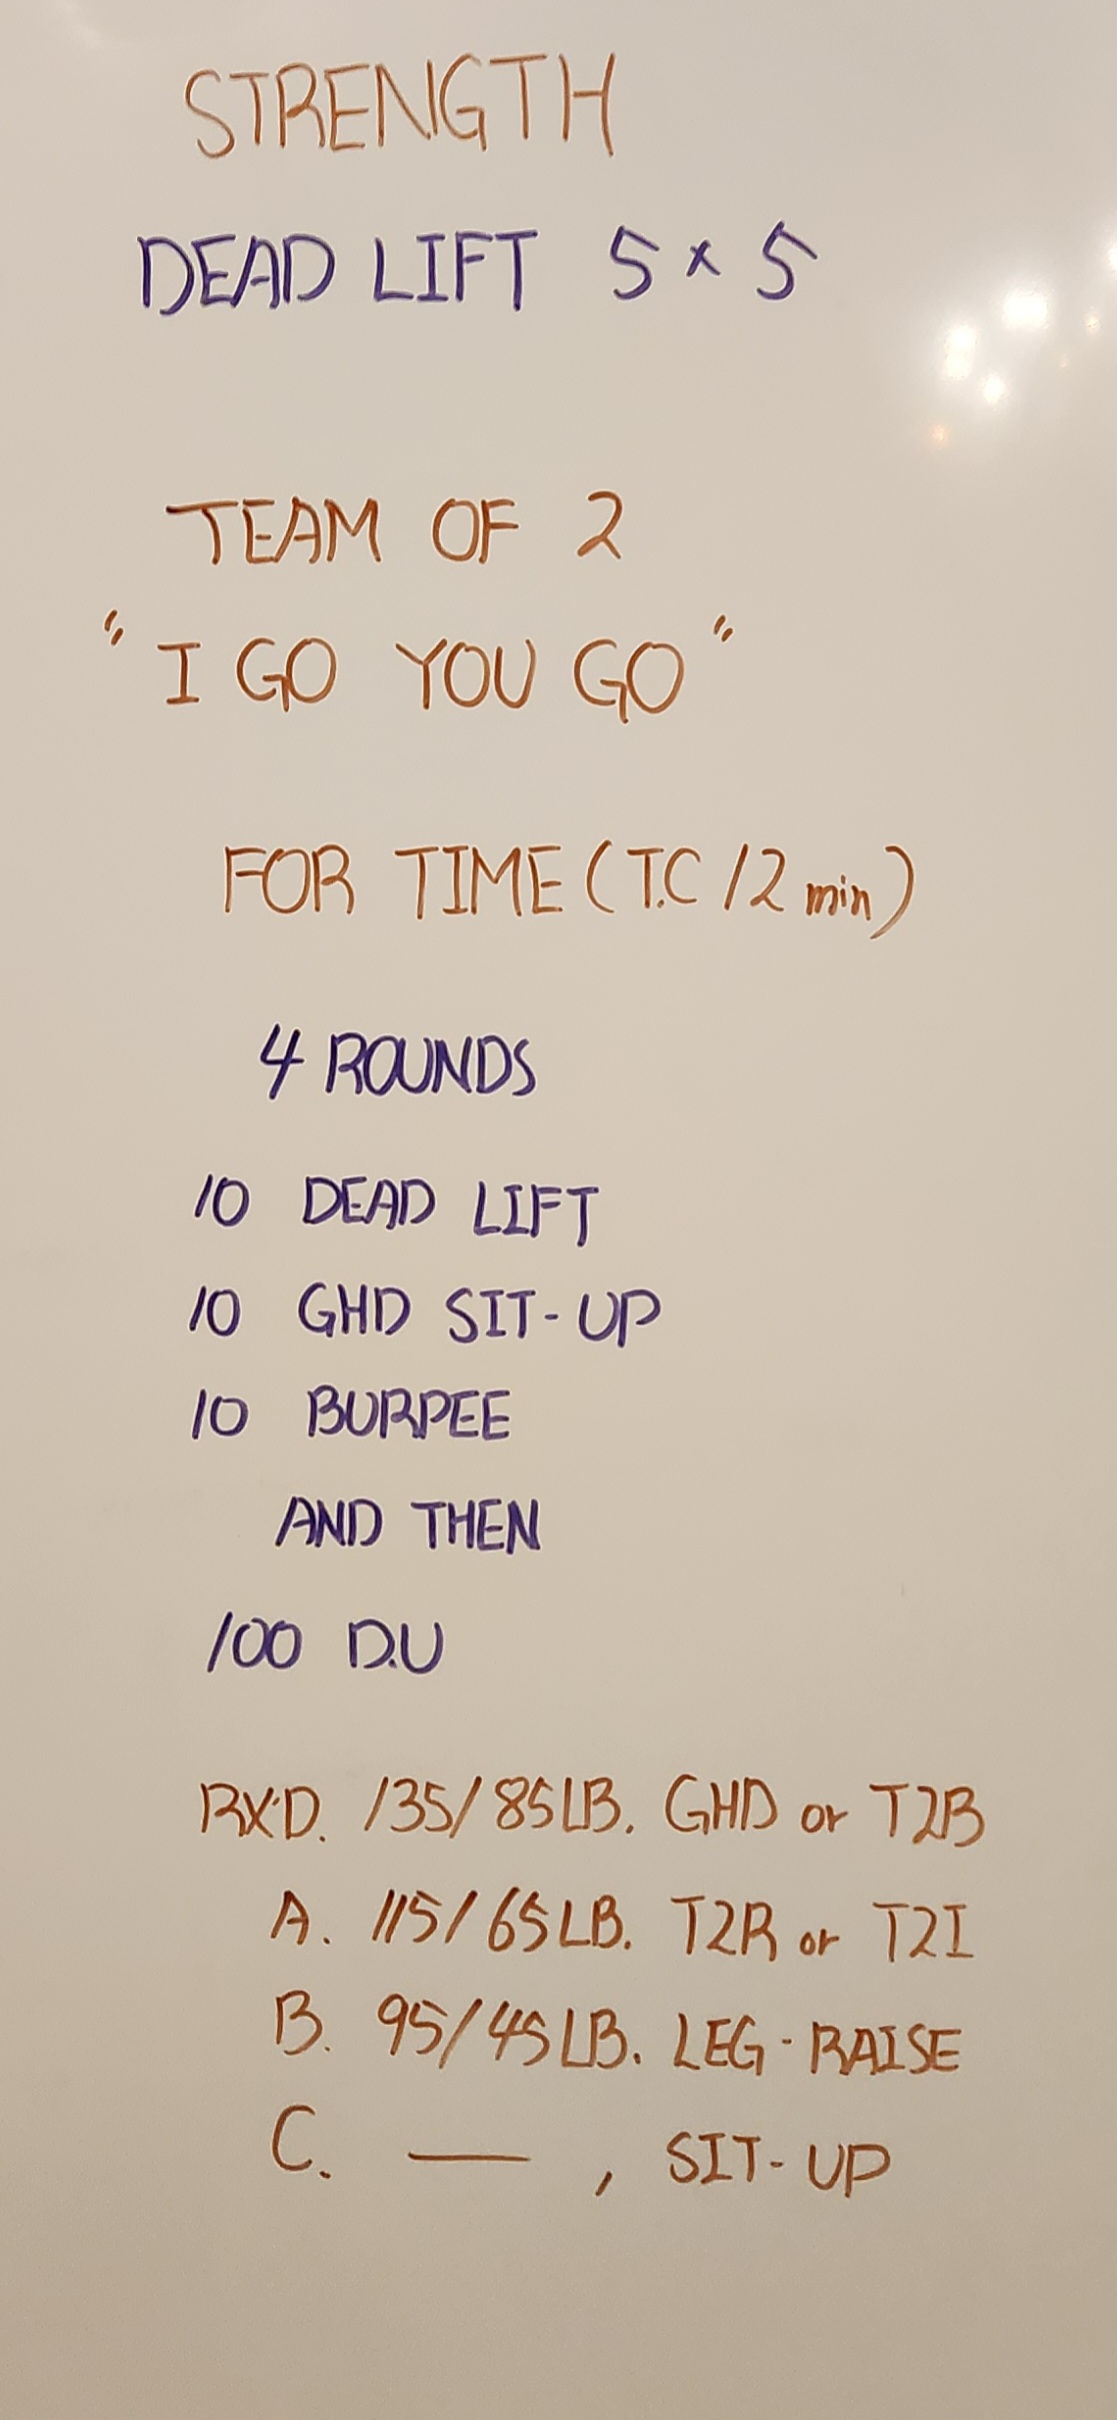 STRENGTH
DEAD LIFT 5 x 5
TEAM OF 2
"I GO YOU GO"
FOR TIME (T.C 12 min)
4 ROUNDS
10 DEAD LIFT
10 GHD SIT-UP
10 BURPEE
AND THEN
100 D.U
RX'D. 135/85LB. GHD or T2B
A. 115/65LB. T2R or T2I
B. 95/45LB. LEG-RAISE
C. — , SIT-UP